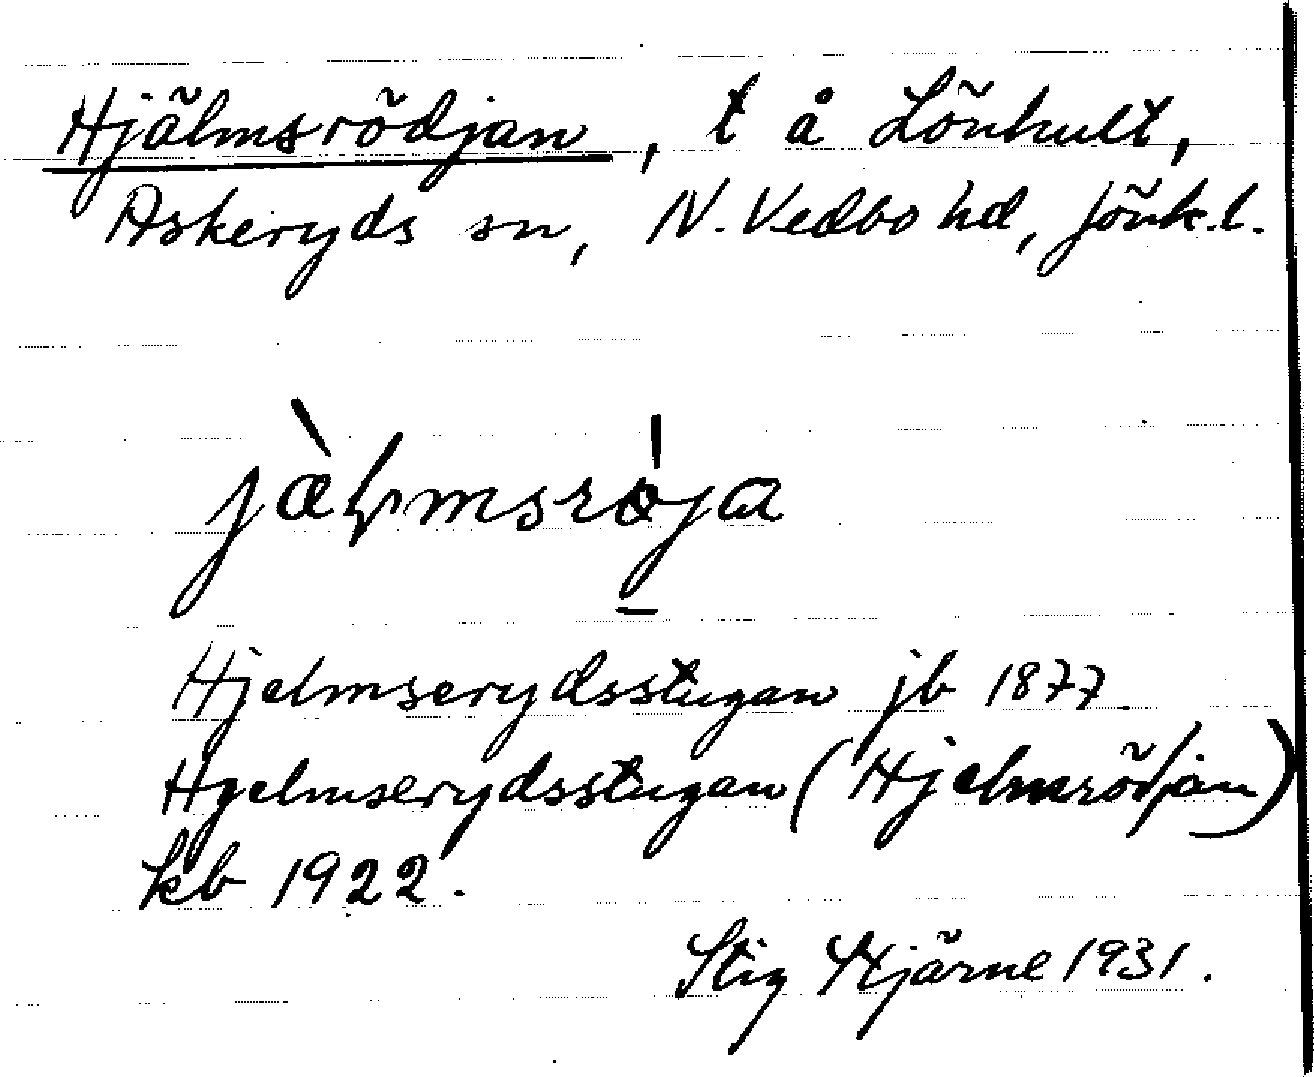 Hjälmsrödjan, t å Lönhult,
Askeryds sn, N. Vedbo hd, Jönk. l.
jæ̀lmsrø̍ja
Hjelmserydsstugan jb 1877
Hjelmserydsstugan (Hjelmsrödjan)
kb 1922.
Stig Hjärne 1931.